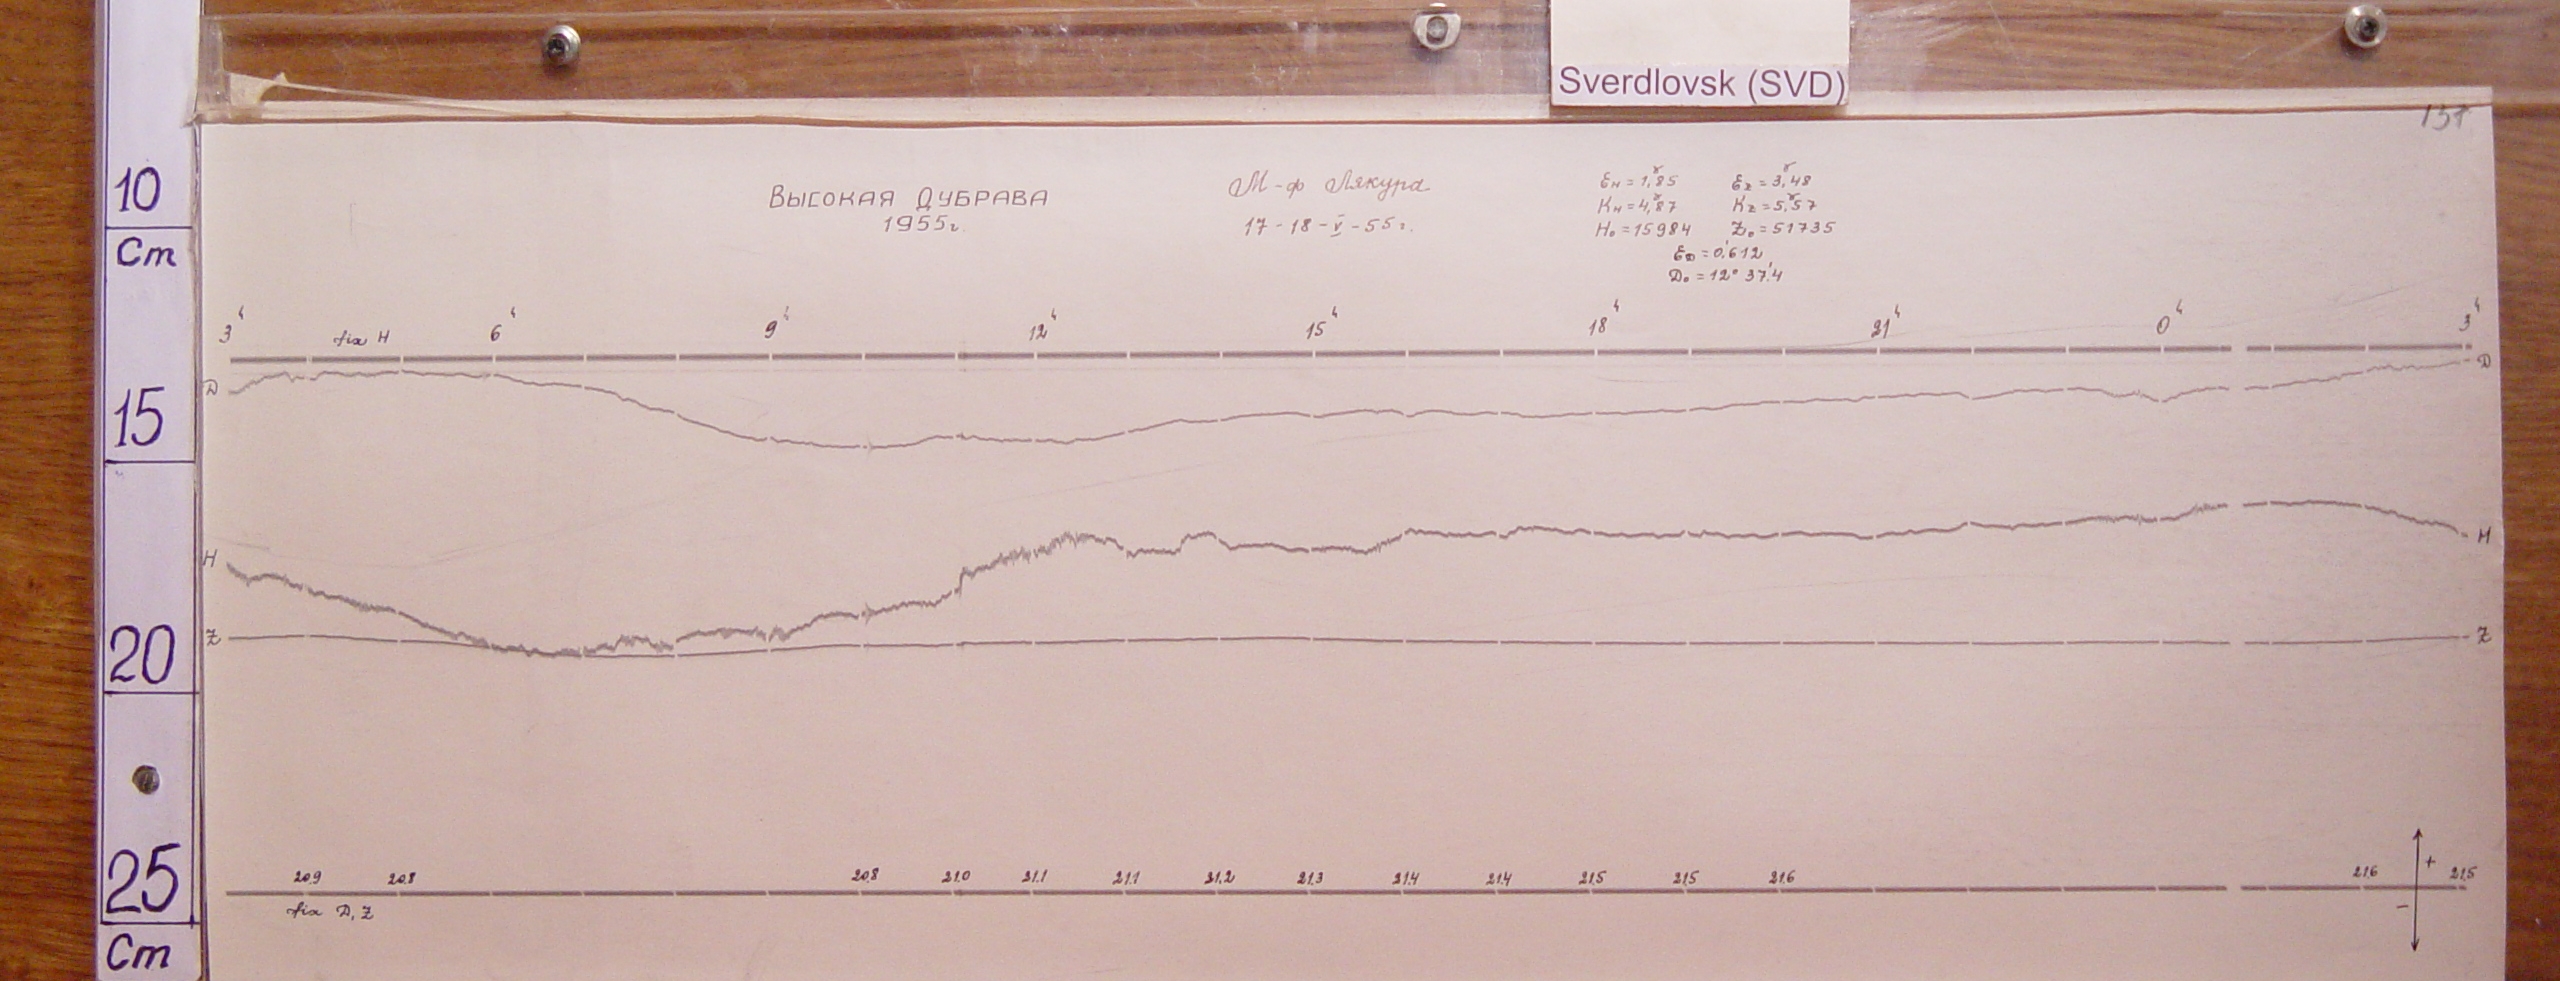 Sverdlovsk (SVD)
10
Cm
15
20
25
Cm
ВЫСОКАЯ ДУБРАВА
1955г.
М-ф Лякура
17-18-V-55г.
Ен = 1,γ85 Еz = 3,γ48
Кн = 4,γ87 Кz = 5,γ57
Н₀ = 15984 Z₀ = 51735
ЕD = 0,'612
D₀ = 12° 37,'4
3ч fix H 6ч 9ч 12ч 15ч 18ч 21ч 0ч 3ч
D D
H H
Z Z
20.9 20.8 20.8 21.0 21.1 21.1 21.2 21.3 21.4 21.4 21.5 21.5 21.6 21.6 21.5
fix D, Z
+
−